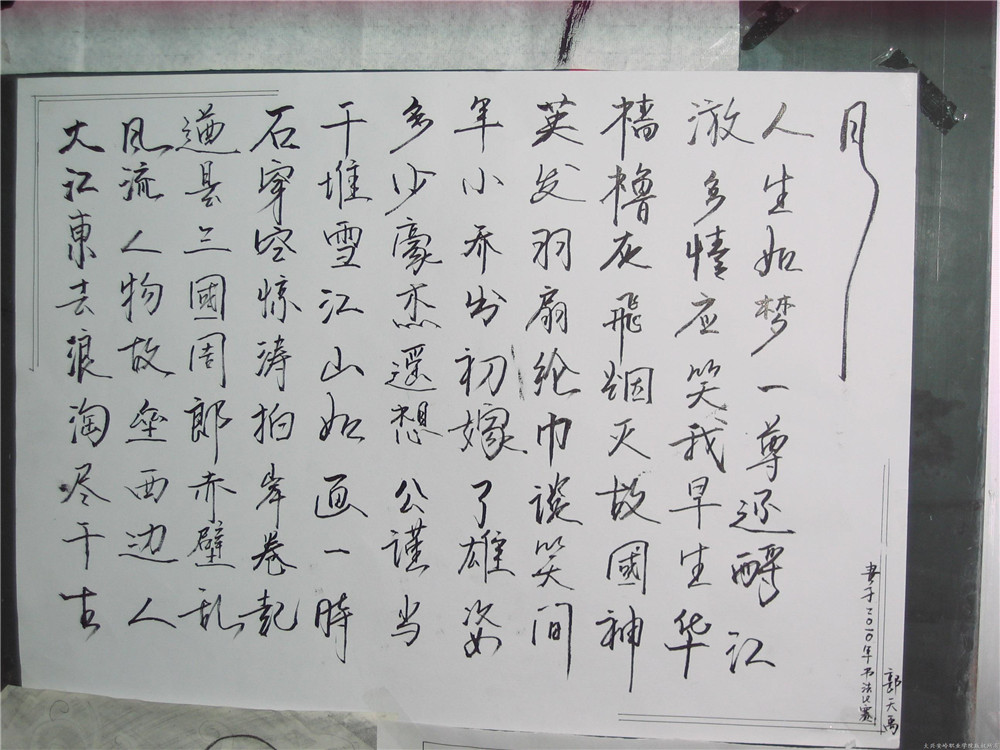 大江東去浪淘尽千古
风流人物故垒西边人
道是三國周郎赤壁乱
石穿空惊涛拍岸卷起
千堆雪江山如画一時
多少豪杰遥想公谨当
年小乔出初嫁了雄姿
英发羽扇纶巾谈笑间
檣櫓灰飛烟灭故國神
多情应笑我早生华
人生如梦一尊还酹江
月
书于二〇一〇年书法比赛
郭天禹